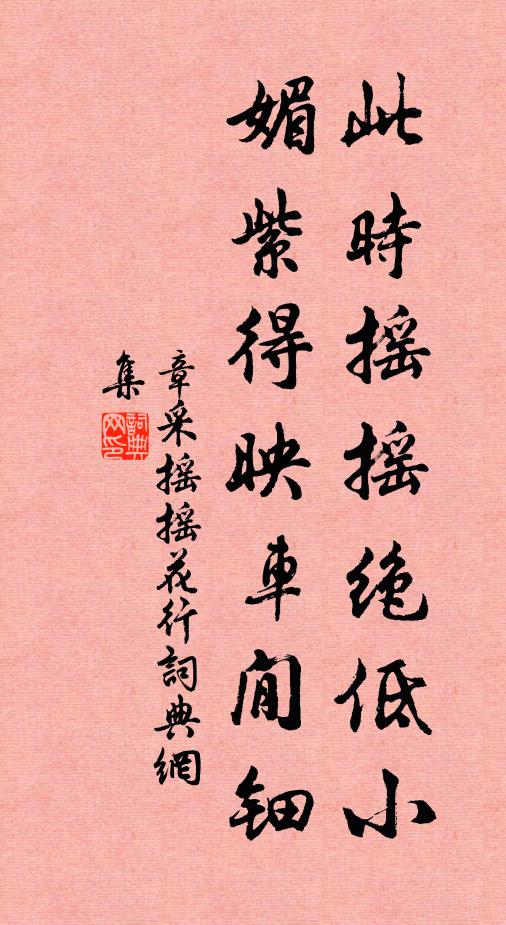 此時摇摇绝低小
媚紫得映車間钿
章采摇摇花行詞典網
集
詞典
网印